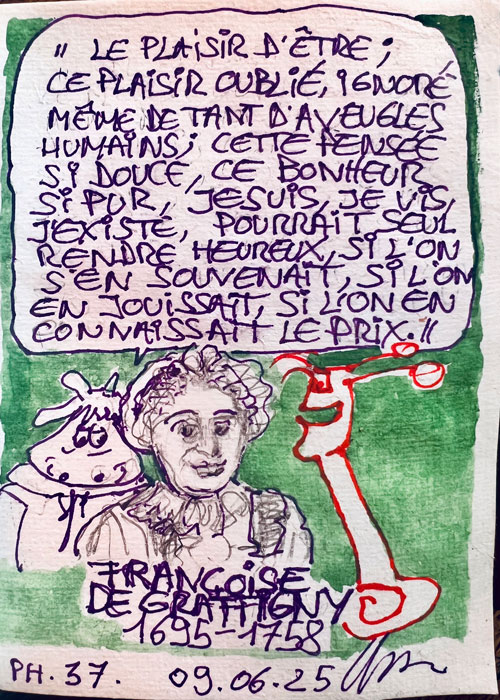 " LE PLAISIR D'ÊTRE ;
CE PLAISIR OUBLIÉ, IGNORÉ
MÊME DE TANT D'AVEUGLES
HUMAINS; CETTE PENSÉE
SI DOUCE, CE BONHEUR
SI PUR, JE SUIS, JE VIS,
J'EXISTE, POURRAIT SEUL
RENDRE HEUREUX, SI L'ON
S'EN SOUVENAIT, SI L'ON
EN JOUISSAIT, SI L'ON EN
CONNAISSAIT LE PRIX. "
FRANÇOISE
DE GRAFFIGNY
1695-1758
PH. 37. 09.06.25